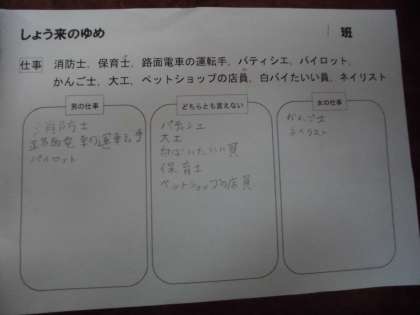 しょう来のゆめ
班
仕事 消防士、保育士、路面電車の運転手、パティシエ、パイロット、
かんご士、大工、ペットショップの店員、白バイたいい員、ネイリスト
男の仕事
消防士
路面電車の運転手
パイロット
どちらとも言えない
パティシエ
大工
白バイたいい員
保育士
ペットショップの店員
女の仕事
かんご士
ネイリスト